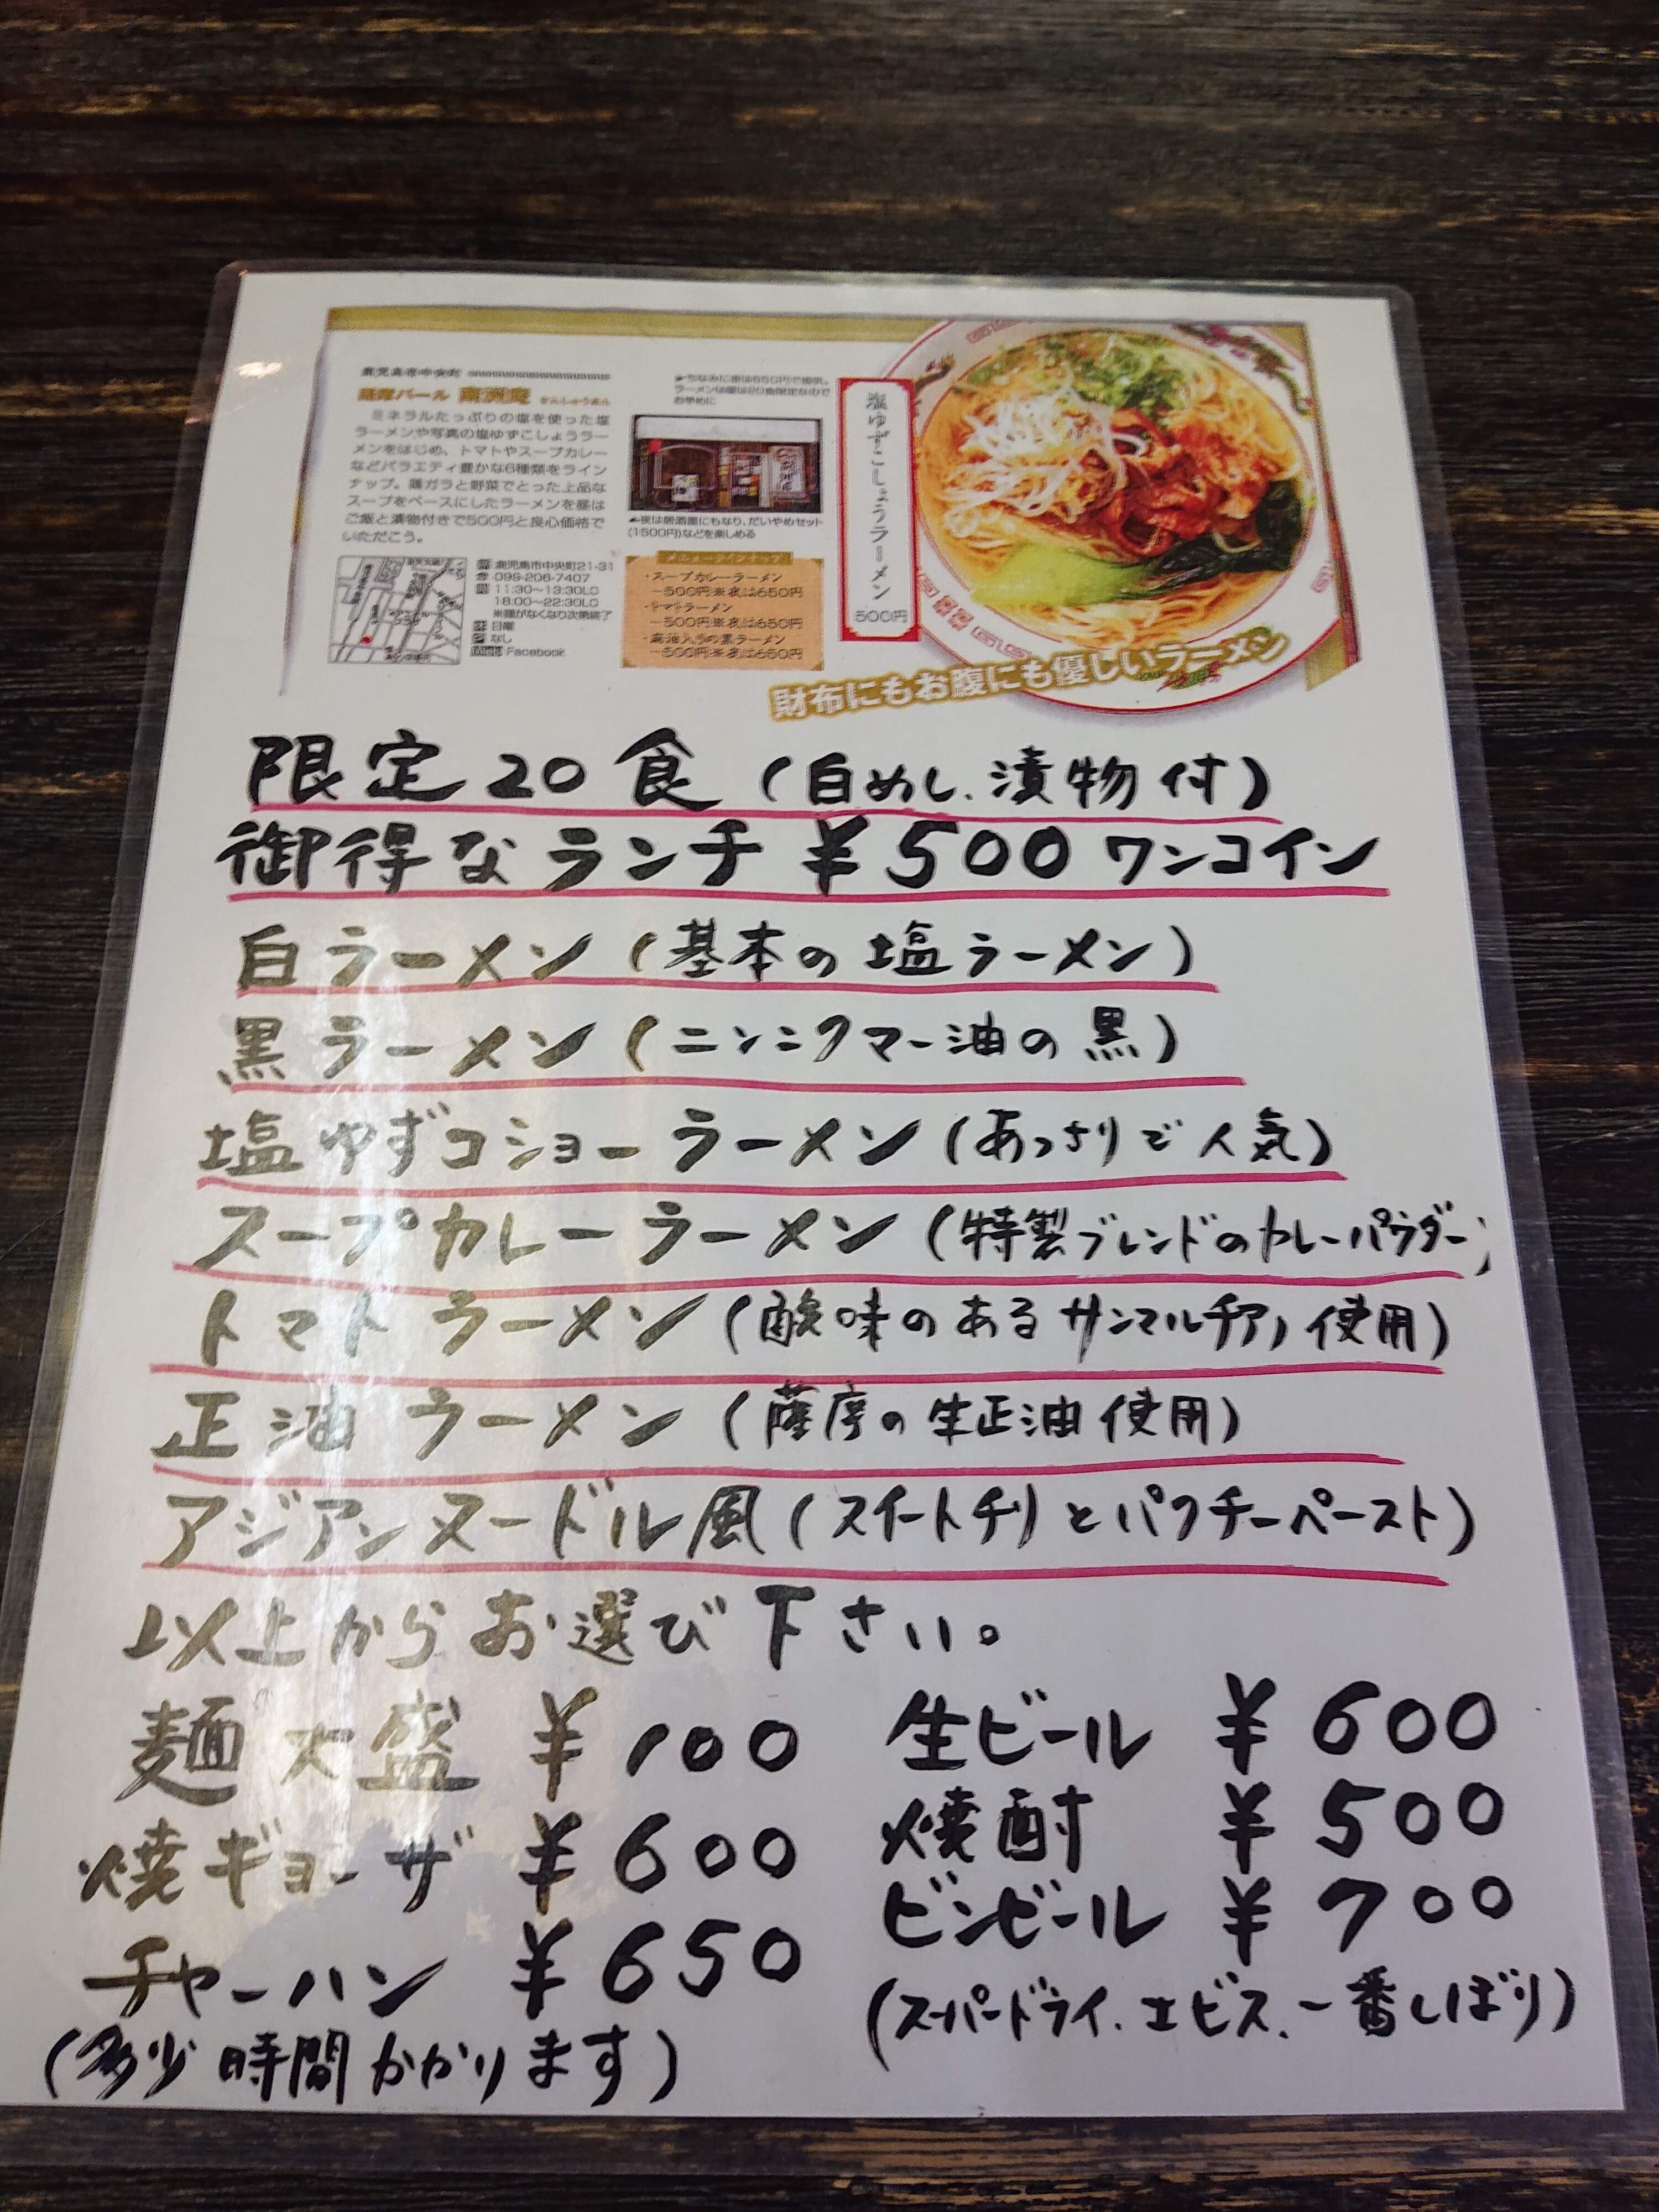 鹿児島市中央町
薩摩バール 南洲庵
ミネラルたっぷりの塩を使った塩
ラーメンや写真の塩ゆずこしょうラー
メンをはじめ、トマトやスープカレー
などバラエティ豊かな6種類をライン
ナップ。鶏ガラと野菜でとった上品な
スープをベースにしたラーメンを昼は
ご飯と漬物付きで500円と良心価格で
いただこう。
鹿児島市中央町21-31
099-206-7407
11:30〜13:30LO
18:00〜22:30LO
※麺がなくなり次第終了
日曜
なし
Facebook
ちなみに夜は650円で提供。
ラーメンは昼は20食限定なので
お早めに
夜は居酒屋にもなり、だいやめセット
(1500円)などを楽しめる
メニューラインナップ
・スープカレーラーメン
―500円※夜は650円
・トマトラーメン
―500円※夜は650円
・麻油入りの黒ラーメン
―500円※夜は650円
塩ゆずこしょうラーメン
500円
財布にもお腹にも優しいラーメン
限定20食(白めし、漬物付)
御得なランチ ¥500ワンコイン
白ラーメン(基本の塩ラーメン)
黒ラーメン(ニンニクマー油の黒)
塩ゆずコショーラーメン(あっさりで人気)
スープカレーラーメン(特製ブレンドのカレーパウダー)
トマトラーメン(酸味のあるサンマルチアノ使用)
正油ラーメン(薩摩の生正油使用)
アジアンヌードル風(スイートチリとパクチーペースト)
以上からお選び下さい。
麺大盛 ¥100
焼ギョーザ ¥600
チャーハン ¥650
(多少時間かかります)
生ビール ¥600
焼酎 ¥500
ビンビール ¥700
(スーパードライ、エビス、一番しぼり)